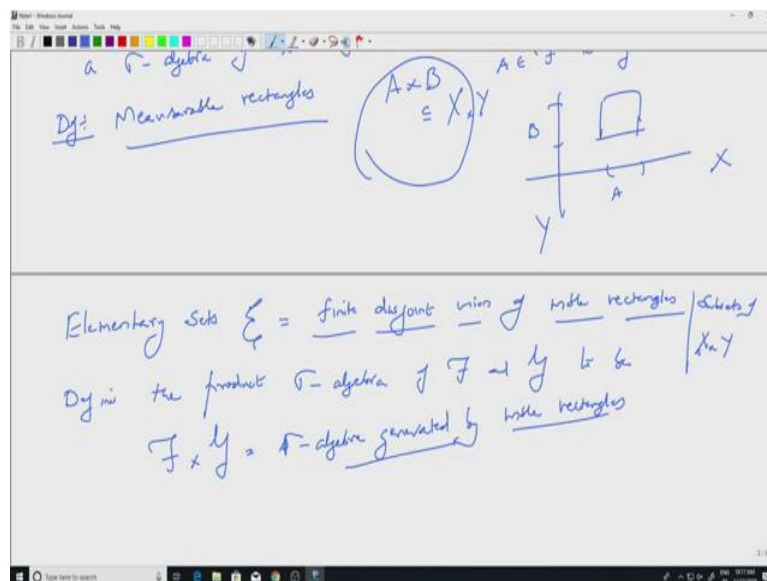 Note1 - Windows Journal
File Edit View Insert Actions Tools Help
a σ-algebra
A ∈ F
Def: Measurable rectangles
A × B ⊆ X × Y
B
A
X
Y
Elementary Sets ξ = finite disjoint union of mble rectangles | Subsets of X × Y
Define the product σ-algebra of F and Y to be
F × Y = σ-algebra generated by mble rectangles
Type here to search